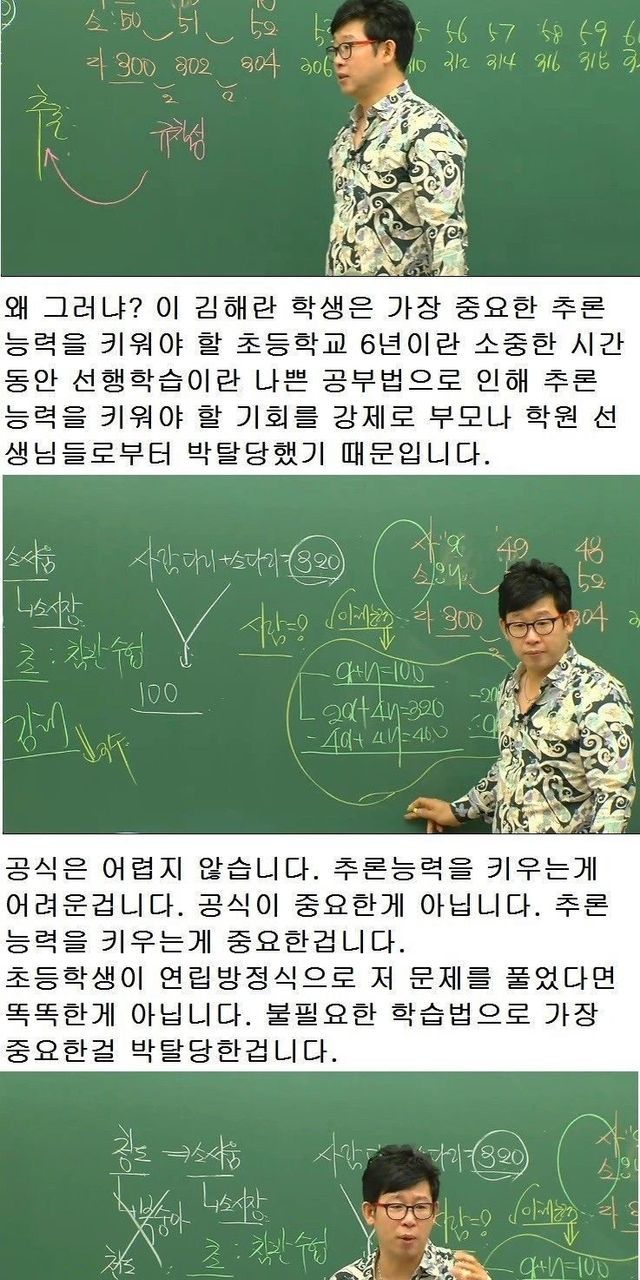 소:50 51 52
56 57 58 59
라 300 302 304
306 310 312 314 316
2 2
추론
규칙성
왜 그러냐? 이 김해란 학생은 가장 중요한 추론
능력을 키워야 할 초등학교 6년이란 소중한 시간
동안 선행학습이란 나쁜 공부법으로 인해 추론
능력을 키워야 할 기회를 강제로 부모나 학원 선
생님들로부터 박탈당했기 때문입니다.
소싸움
사람다리+소다리=320
49 48
52
소시장
사람=?
라 300 304
2
초:참관수업
100
x+y=100
2x+4y=320
-4x+4y=400
공식은 어렵지 않습니다. 추론능력을 키우는게
어려운겁니다. 공식이 중요한게 아닙니다. 추론
능력을 키우는게 중요한겁니다.
초등학생이 연립방정식으로 저 문제를 풀었다면
똑똑한게 아닙니다. 불필요한 학습법으로 가장
중요한걸 박탈당한겁니다.
청도 ⇒ 소싸움
320
복숭아 소시장
사람=?
청도 초:참관수업
x+y=100